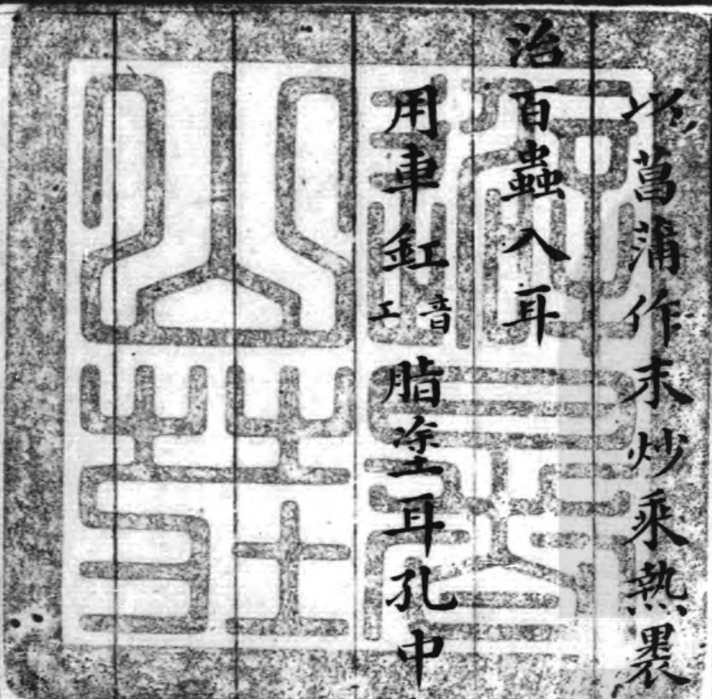 以菖蒲作末炒乗熱裹
治百蟲入耳
用車釭音工脂塗耳孔中
避暑山莊